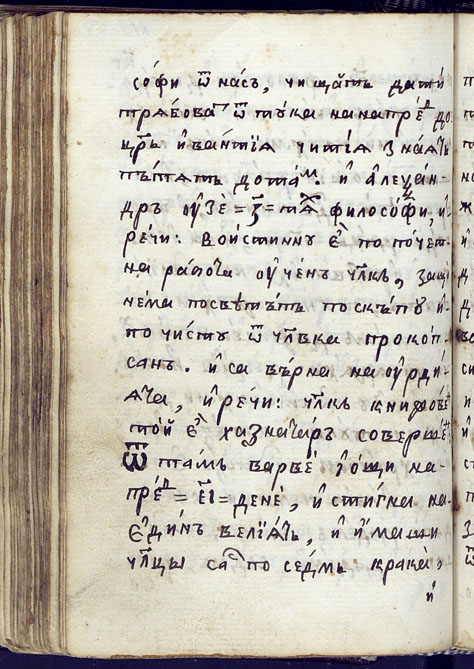 со́фи ѿ на́съ, чи ща́тъ да ти́
трѧ́бова ѿ ту́ка на напре́д до
цр҃ь и҆ванті́ѧ чи ті́ѧ зна́ѧтъ
пъ́тѧтъ до та́м. и҆ але҆ѯа́н-
дръ оу҆зе =з҃= тѧ̑ філосо́фи, и҆-
речи: во҆и́стинну є҆ по поче́т-
на рабо́та оу҆че́нъ чл҃къ, защо́
не́ма посвѣ́тъ по скъ́пу и҆-
по чи́сту ѿ чл҃вка прокоп-
санъ. и҆ са въ́рна на оу҆рди́-
ѧта, и҆ ре́чи: чл҃къ книгове́
то́й є҆ хазната́ръ соверше́
Ѿ та́мъ варве́ і҆ ѻ҆́щи на-
пре́д =є҃і= де́не, и҆ сти́гна на-
є҆ди́нъ велїѧ́тъ, и҆ и҆́маши
чл҃цы са по се́дмь крака̀,
и҆